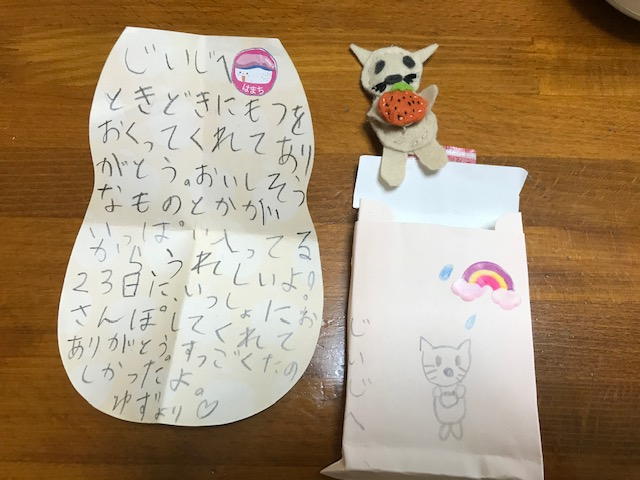 じいじへ
はまち
ときどきにもつを
おくってくれてあり
がとう。おいしそう
なものとかが
いっぱい入ってる
から、うれしいよ!
23日に、いっしょにお
さんぽしてくれて
ありがとう。すっごくたの
しかったよ。
ゆずより♡
じいじへ